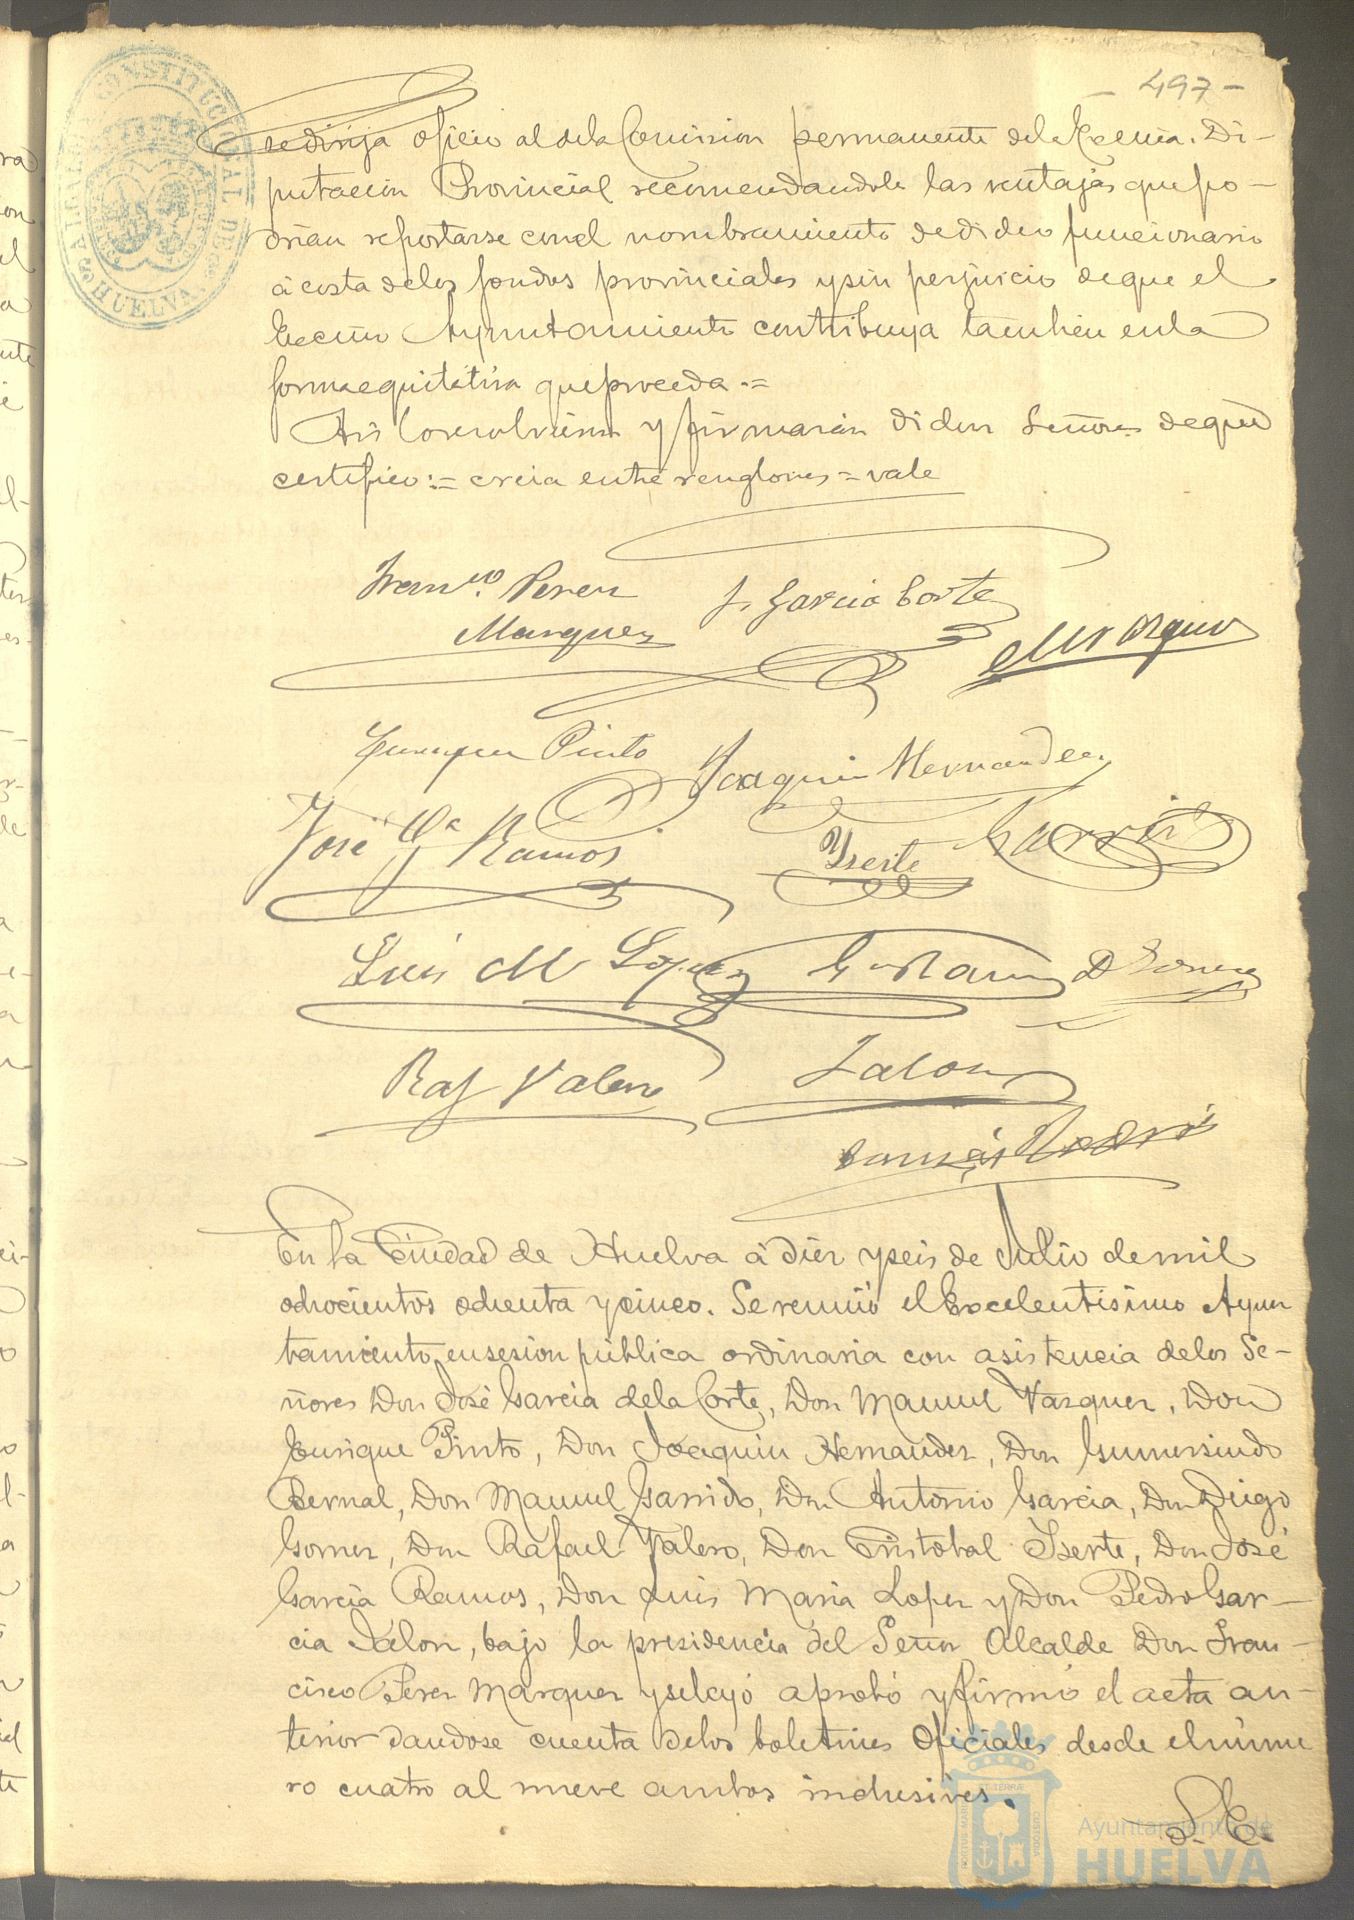 - 497 -
ALCALDIA CONSTITUCIONAL DE HUELVA
se dirija oficio al de la Comision permanente de la Excma. Di-
putacion Provincial recomendandole las ventajas que po-
drian reportarse con el nombramiento de dicho funcionario
á costa de los fondos provinciales y sin perjuicio de que el
Excmo Ayuntamiento contribuya tambien en la
forma equitativa que proceda.=
Asi lo resolvieron y firmarán dichos Señores de que
certifico:= creia entre renglones = vale
Franco. Perez
Marquez
J. Garcia Corte
M Vazquez
Enrique Pinto
Joaquin Hernandez
José Ga Ramos
Yserte
Garrido
Luis M Lopez
D Gomez
Raf Valero
Jalon
En la Ciudad de Huelva á diez y seis de Julio de mil
ochocientos ochenta y cinco. Se reunió el Excelentisimo Ayun
tamiento, en sesion pública ordinaria con asistencia de los Se-
ñores Don José Garcia de la Corte, Don Manuel Vazquez, Don
Enrique Pinto, Don Joaquin Hernandez, Don Gumersindo
Bernal, Don Manuel Garrido, Don Antonio Garcia, Don Diego
Gomez, Don Rafael Valero, Don Cristobal Yserte, Don José
Garcia Ramos, Don Luis Maria Lopez y Don Pedro Gar-
cia Jalon, bajo la presidencia del Señor Alcalde Don Fran-
cisco Perez Marquez y se leyó aprobó y firmó el acta an-
terior dandose cuenta de los boletines Oficiales desde el núme
ro cuatro al nueve ambos inclusives.
S. E.
Ayuntamiento de
HUELVA